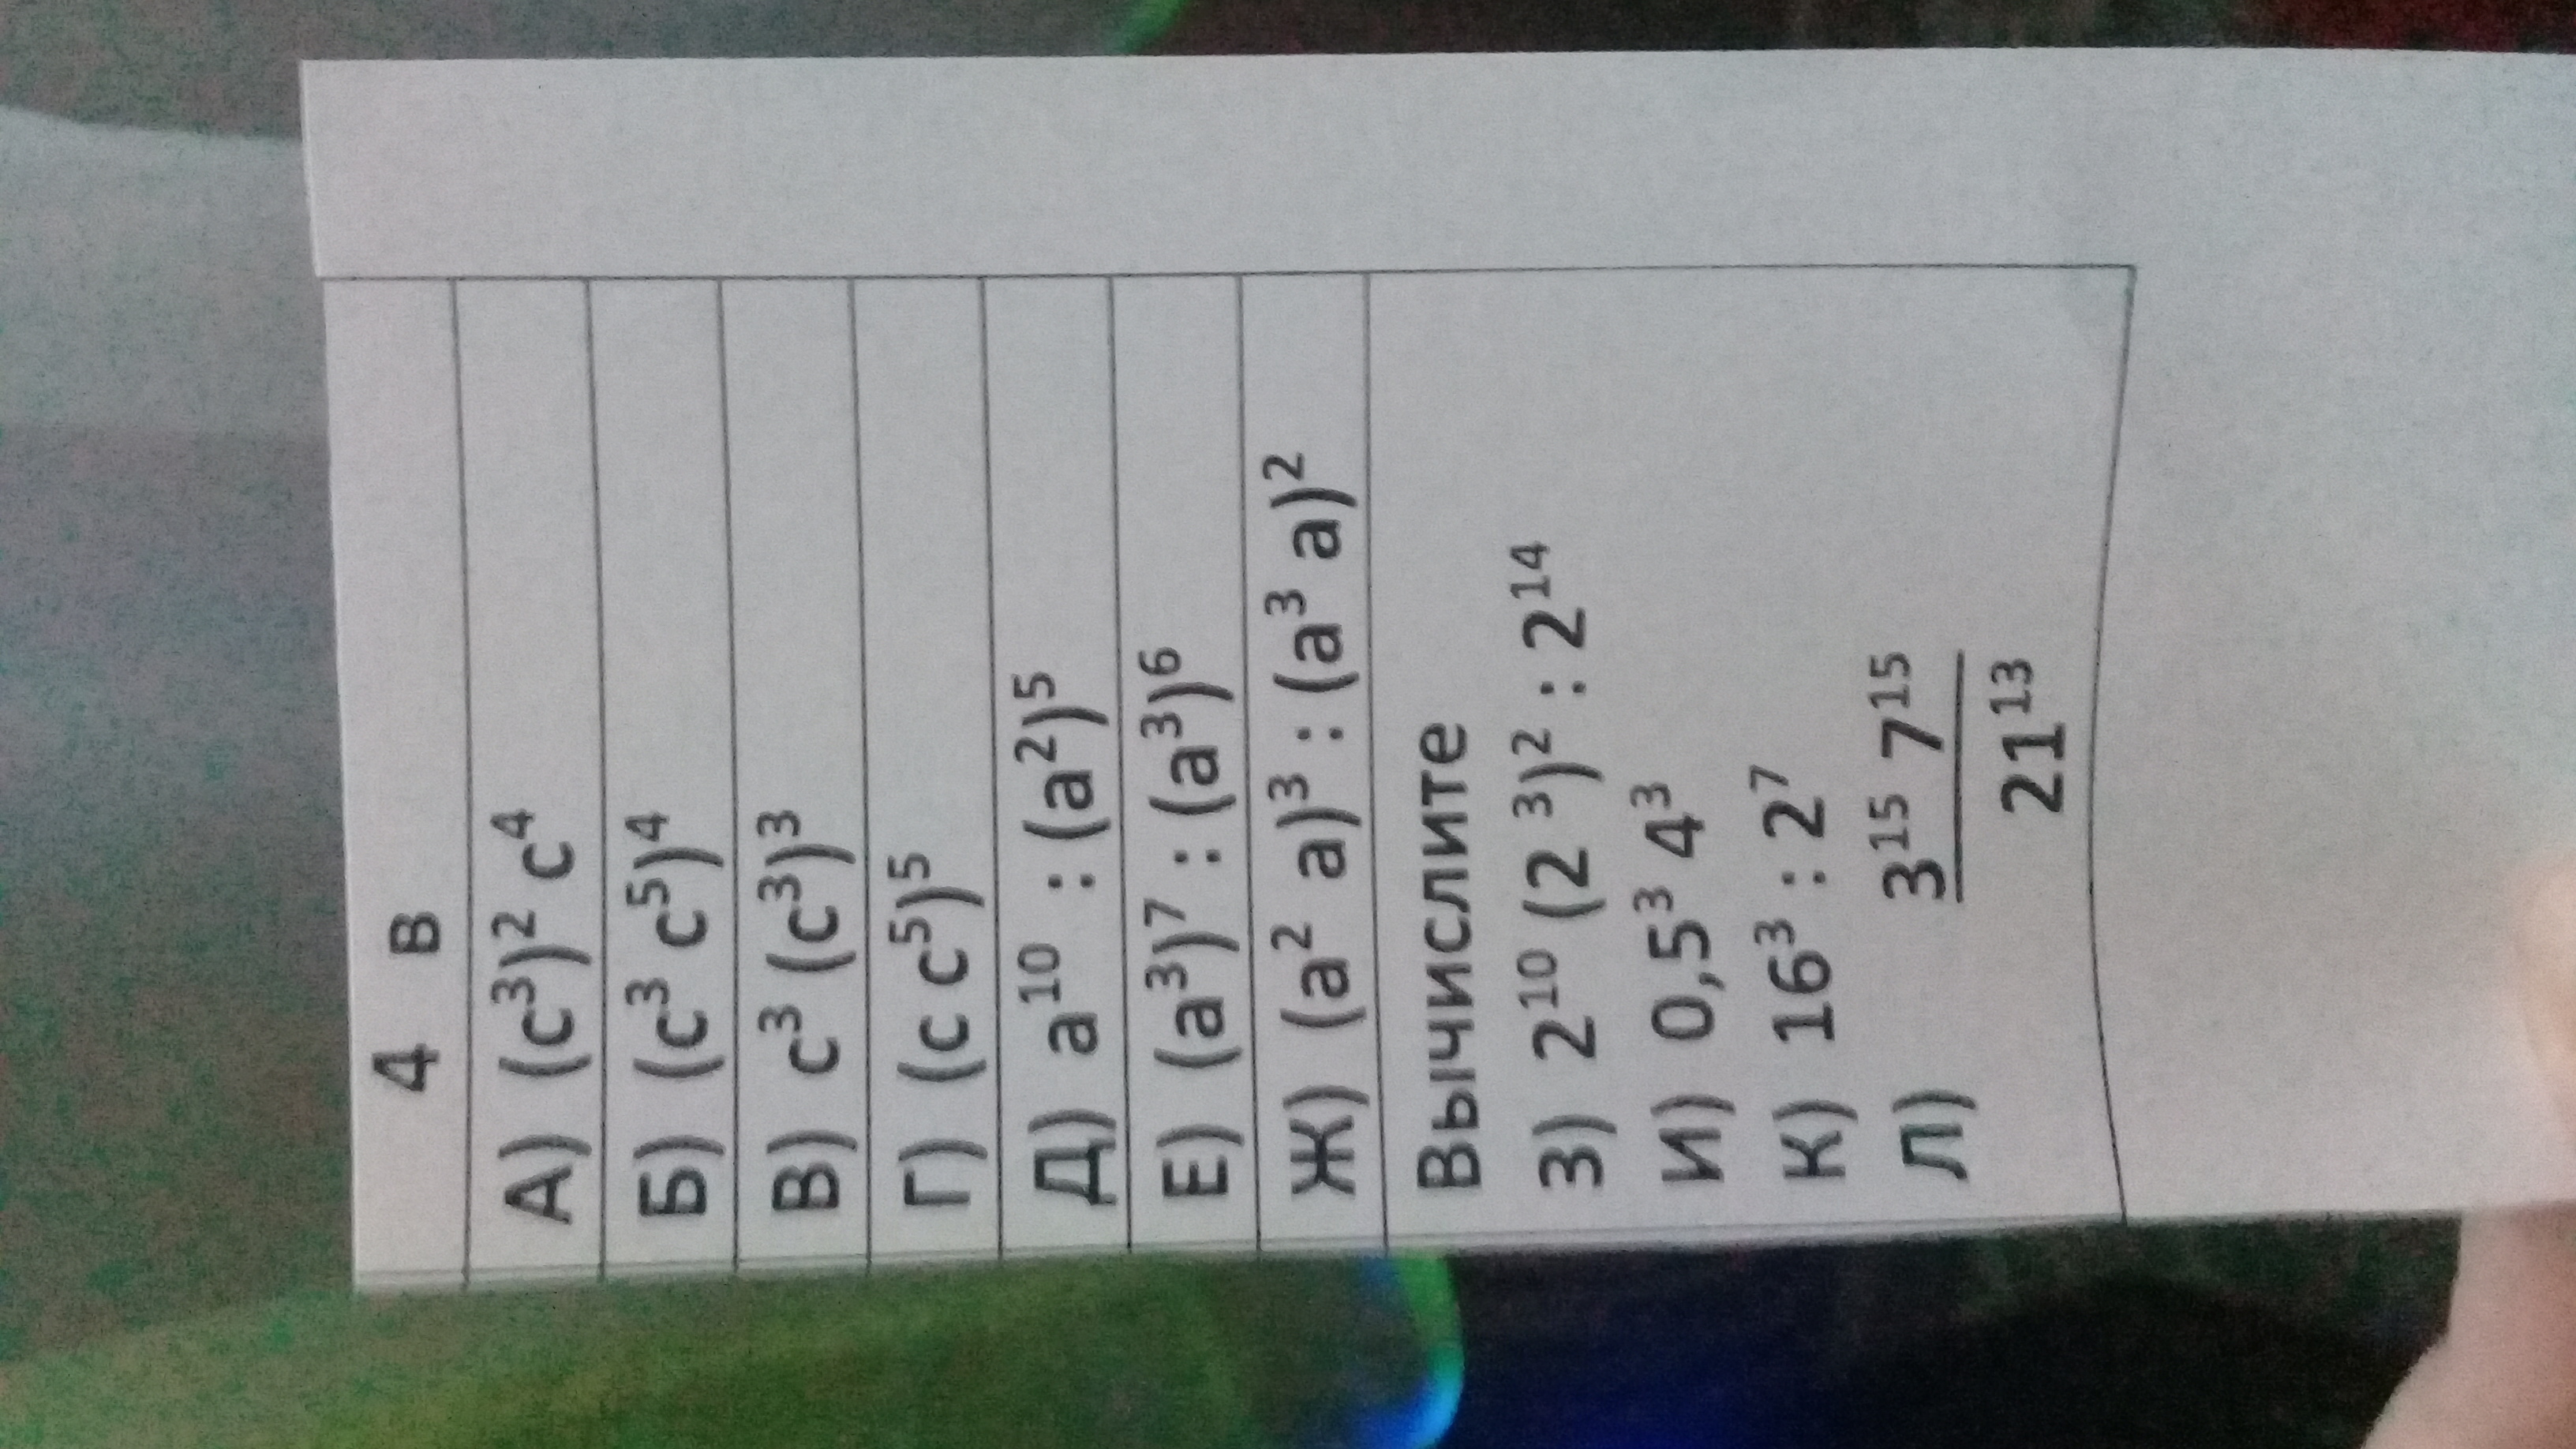 4 в
А) (c³)² c⁴
Б) (c³ c⁵)⁴
В) c³ (c³)³
Г) (c c⁵)⁵
Д) a¹⁰ : (a²)⁵
Е) (a³)⁷ : (a³)⁶
Ж) (a² a)³ : (a³ a)²
Вычислите
З) 2¹⁰ (2 ³)² : 2¹⁴
И) 0,5³ 4³
К) 16³ : 2⁷
Л) 3¹⁵ 7¹⁵
21¹³